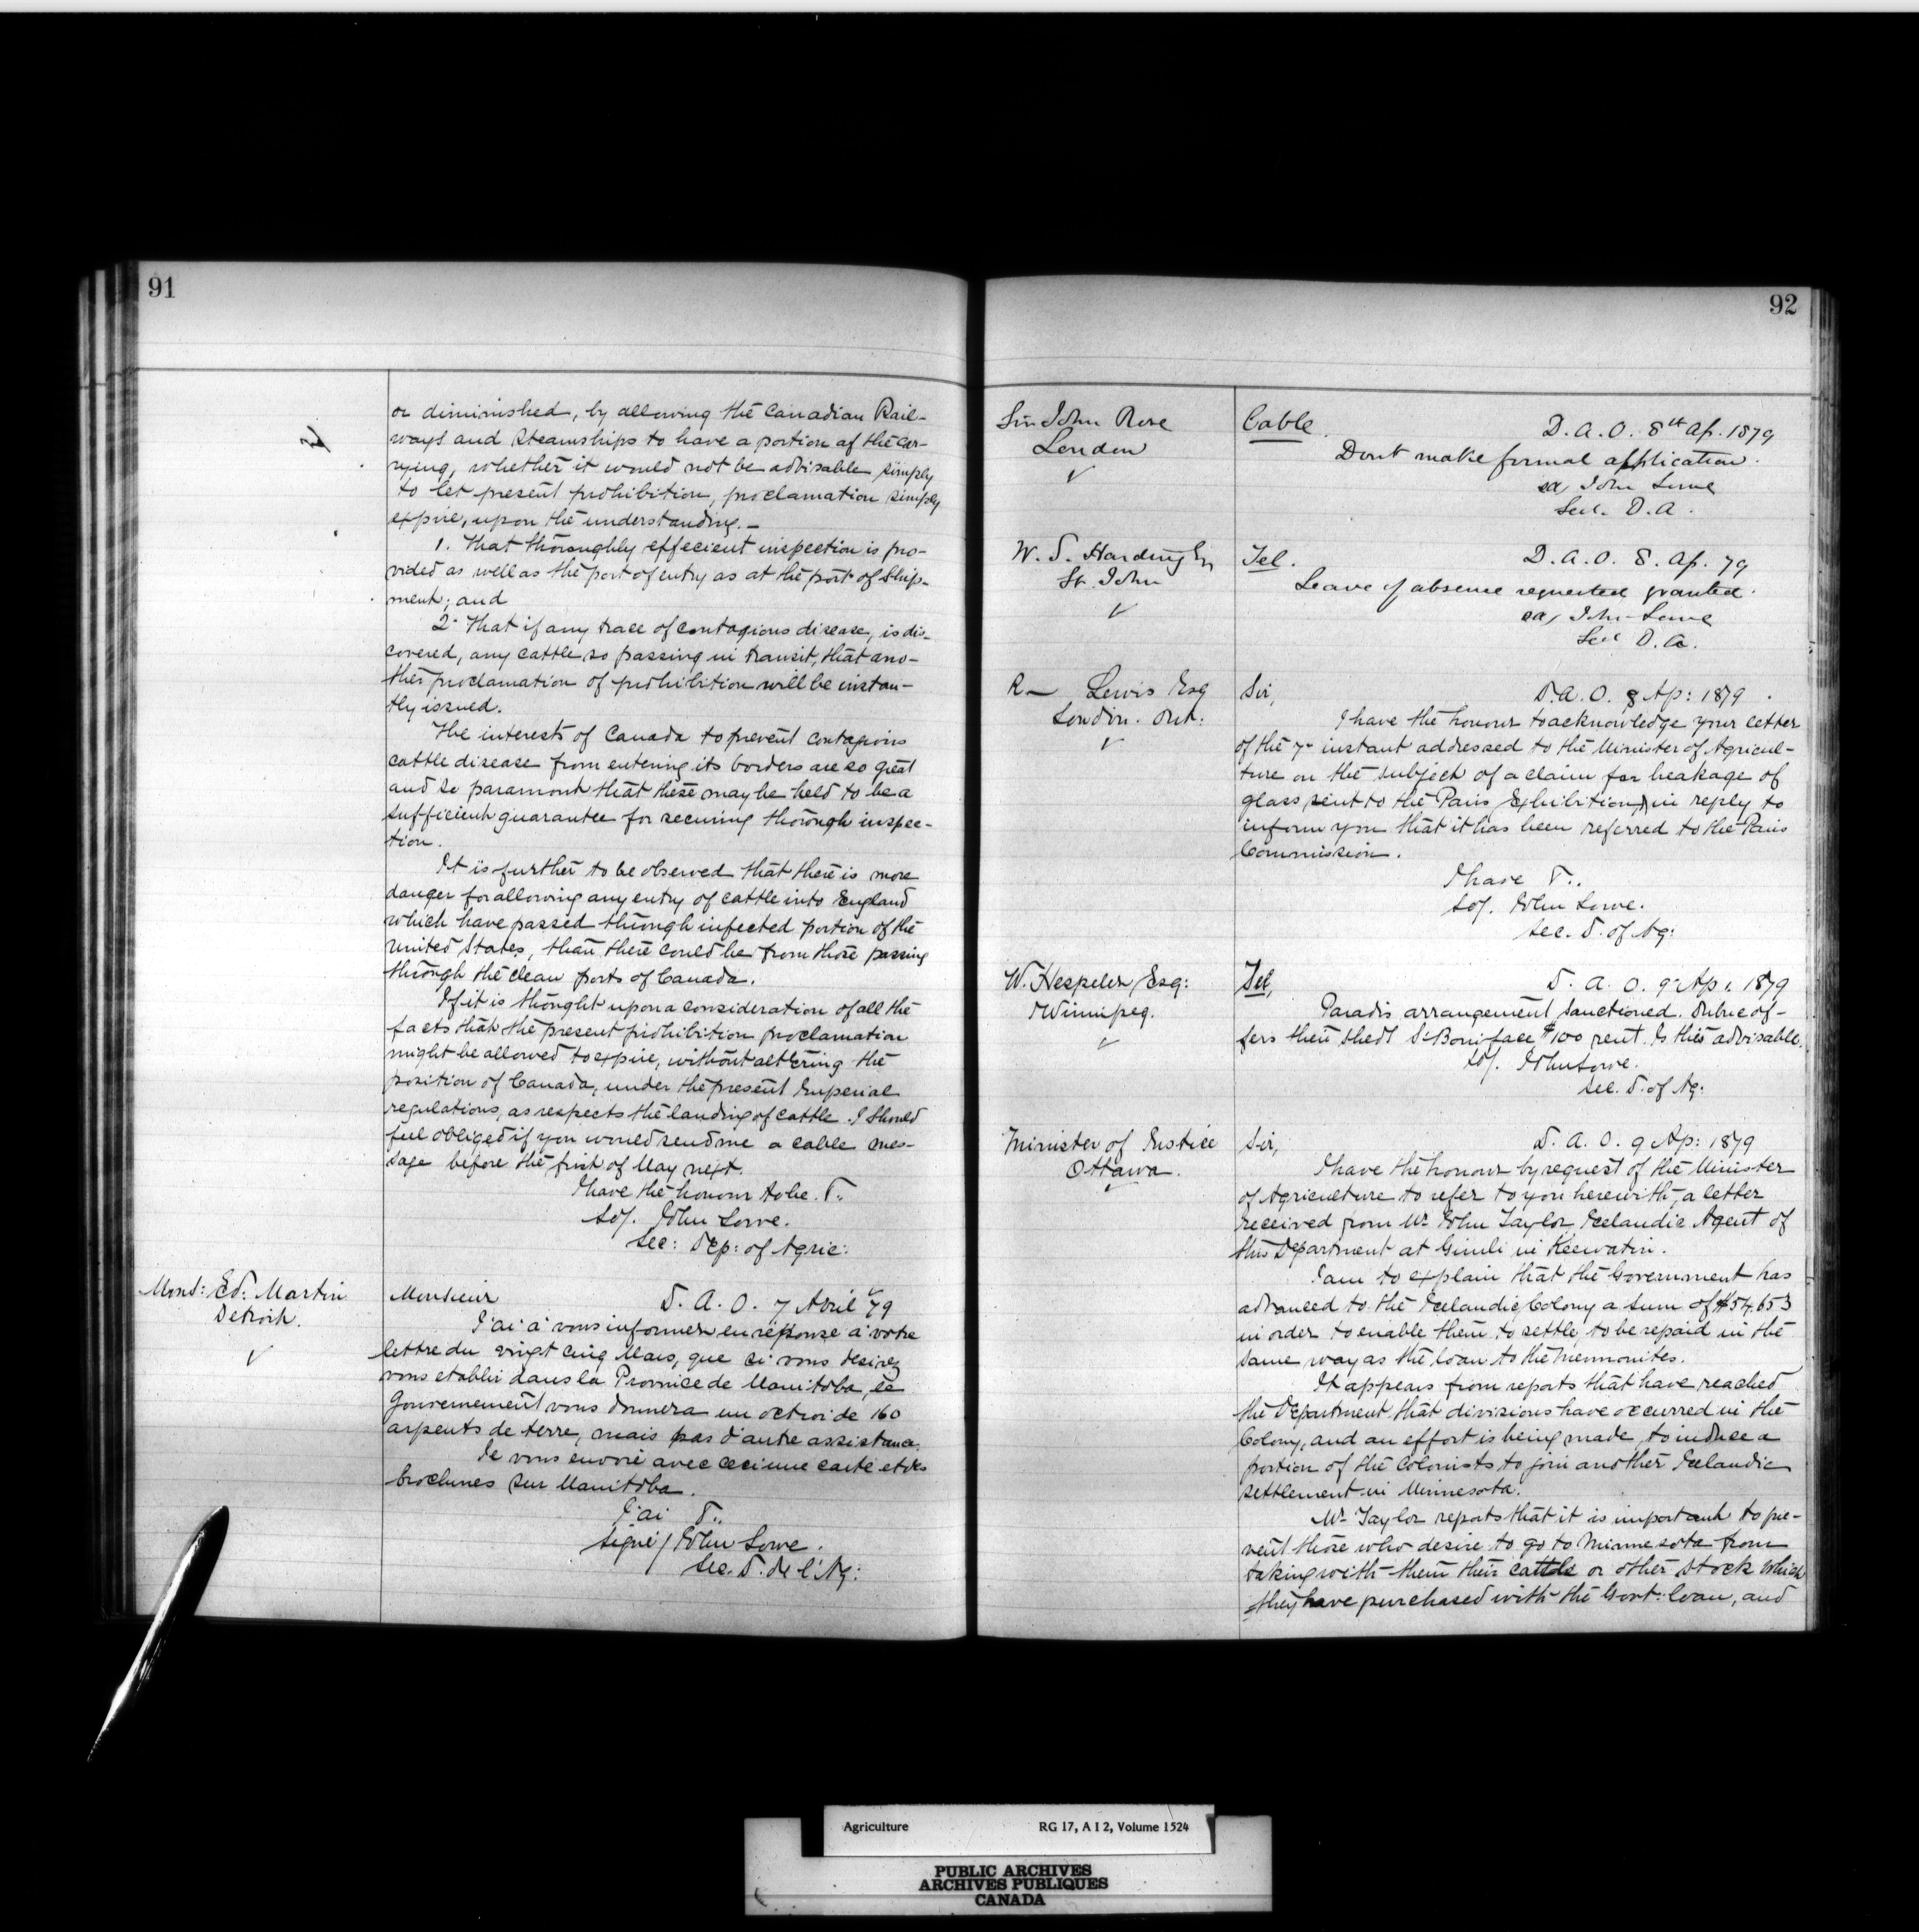 91
or diminished, by allowing the Canadian Rail-
ways and Steamships to have a portion of the car-
rying, whether it would not be advisable simply
to let present prohibition, proclamation simply
expire, upon the understanding.—
1. That thoroughly effecient inspection is pro-
vided as well as the port of entry as at the port of Ship-
ment; and
2. That if any trace of contagious disease, is dis-
covered, any cattle so passing in transit, that ano-
ther proclamation of prohibition will be instan-
tly issued.
The interests of Canada to prevent contagious
cattle disease from entering its borders are so great
and so paramont that these may be held to be a
sufficient guarantee for securing thorough inspec-
tion.
It is further to be observed that there is more
danger for allowing any entry of cattle into England
which have passed through infected portion of the
United States, than there could be from those passing
through the clean ports of Canada.
If it is thought upon a consideration of all the
facts that the present prohibition proclamation
might be allowed to expire, without altering the
position of Canada, under the present Imperial
regulations, as respects the landing of cattle. I should
feel obliged if you would send me a cable mes-
sage before the first of May next.
I have the honour to be. &..
Sd/. John Lowe.
Sec: Dep: of Agric:
Mons: Ed: Martin
Detroit.
Monsieur
D. A. O. 7 Avril /79
J'ai à vous informer en réponse à votre
lettre du vingt cinq Mars, que si vous desirez
vous etablir dans la Province de Manitoba, le
Gouvernement vous donnera un octroi de 160
arpents de terre, mais pas d'autre assistance.
Je vous envoie avec ceci une carte et des
brochures sur Manitoba.
J'ai &..
Signé/ John Lowe.
Sec. D. de l'Ag:
92
Sir John Rose
London
Cable.
D. A. O. 8th Ap. 1879
Dont make formal application.
sd/ John Lowe
Sec. D. A.
W. S. Harding Esq
St. John
Tel.
D. A. O. 8. Ap. 79
Leave of absence requested granted.
sd/ John Lowe
Sec D. A.
R— Lewis Esq
London. Ont:
Sir,
D. A. O. 8 Ap: 1879.
I have the honour to acknowledge your letter
of the 7th instant addressed to the Minister of Agricul-
ture on the subject of a claim for breakage of
glass sent to the Paris Exhibition, in reply to
inform you that it has been referred to the Paris
Commission.
I have &..
Sd/. John Lowe.
Sec. D. of Ag:
W. Hespeler Esq:
Winnipeg.
Tel,
D. A. O. 9 Ap. 1879
Paradis arrangement sanctioned. Dubuc of-
fers then shed St Boniface $100 rent. Is this advisable.
Sd/. John Lowe.
Sec. D. of Ag:
Minister of Justice
Ottawa.
Sir,
D. A. O. 9 Ap: 1879
I have the honour by request of the Minister
of Agriculture to refer to you herewith, a letter
received from Mr. John Taylor, Icelandic Agent of
this Department at Gimli in Keewatin.
I am to explain that the Government has
advanced to the Icelandic Colony a sum of $54.653
in order to enable them to settle, to be repaid in the
same way as the loan to the Mennonites.
It appears from reports that have reached
the Department that divisions have occurred in the
Colony, and an effort is being made, to induce a
portion of the Colonists to join another Icelandic
settlement in Minnesota.
Mr. Taylor reports that it is important to pre-
vent those who desire to go to Minnesota from
taking with them their cattle or other stock which
they have purchased with the Govt: loan, and
Agriculture RG 17, A I 2, Volume 1524
PUBLIC ARCHIVES
ARCHIVES PUBLIQUES
CANADA